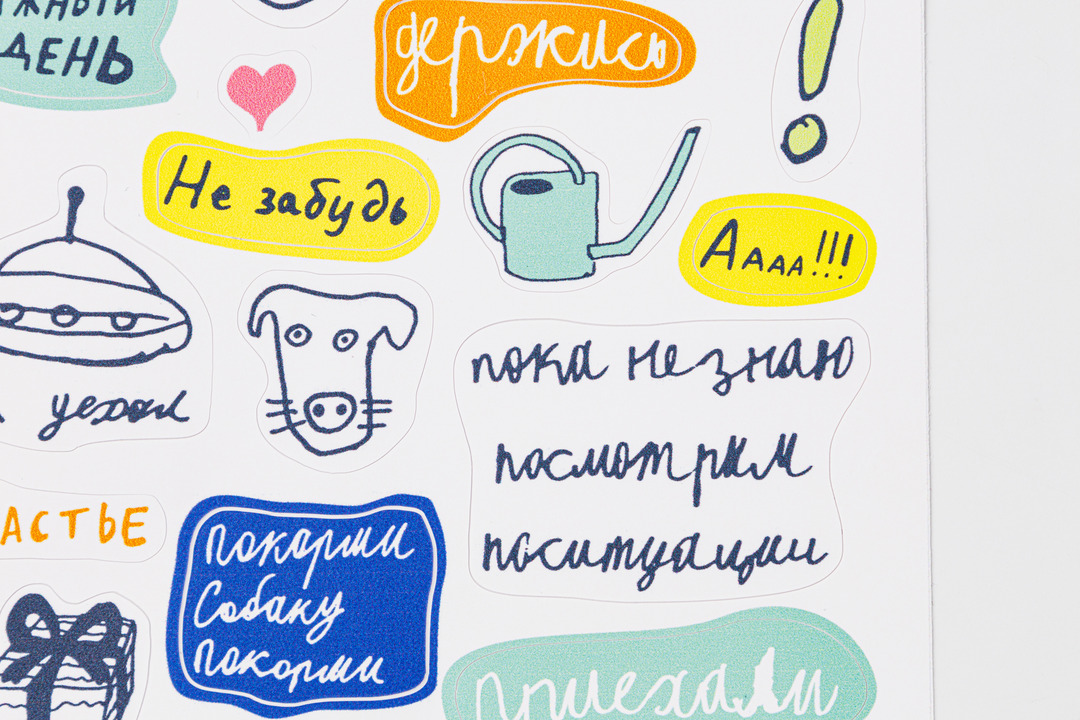 ДЕНЬ
держись
Не забудь
Аааа!!!
уехал
пока не знаю
посмотрим
по ситуации
АСТЬЕ
покорми
Собаку
покорми
приехали